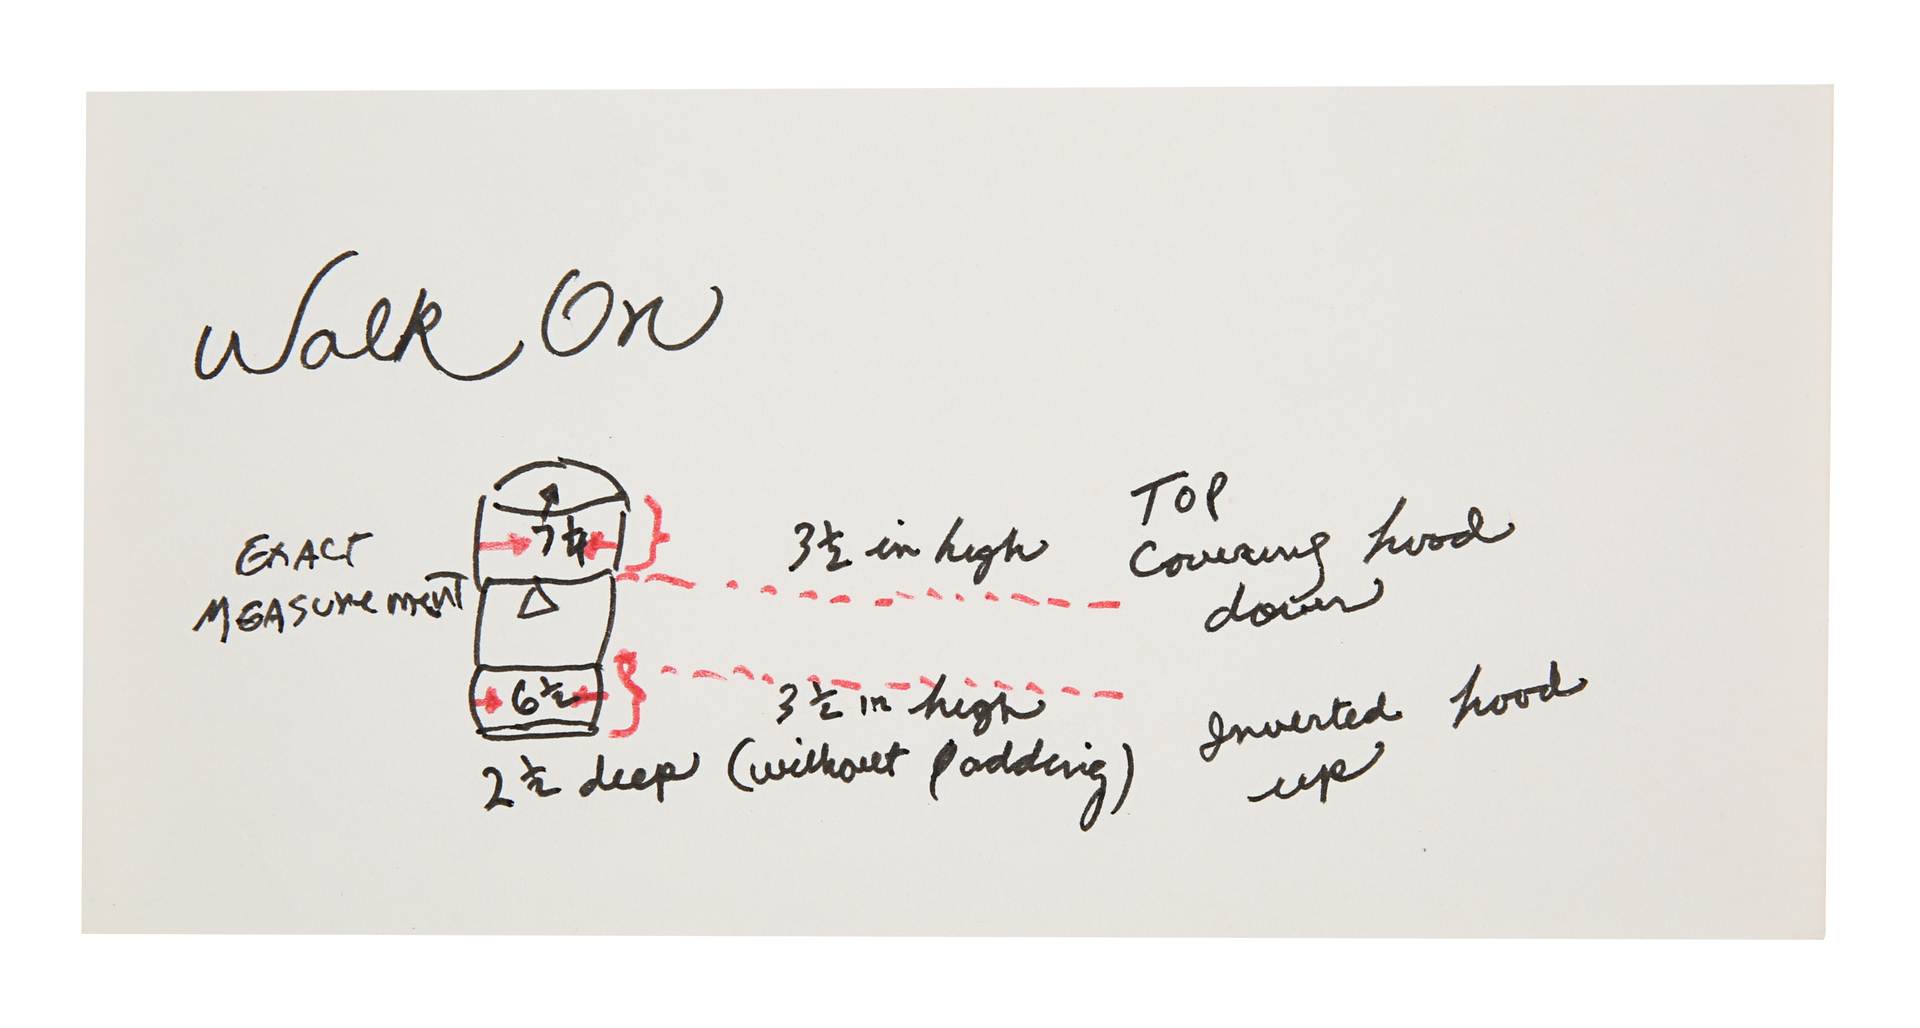 Walk On
TOP
EXACT 7 1/4 3 1/2 in high Covering hood
MEASUREMENT down
6 1/2 3 1/2 in high Inverted hood
2 1/2 deep (without padding) up